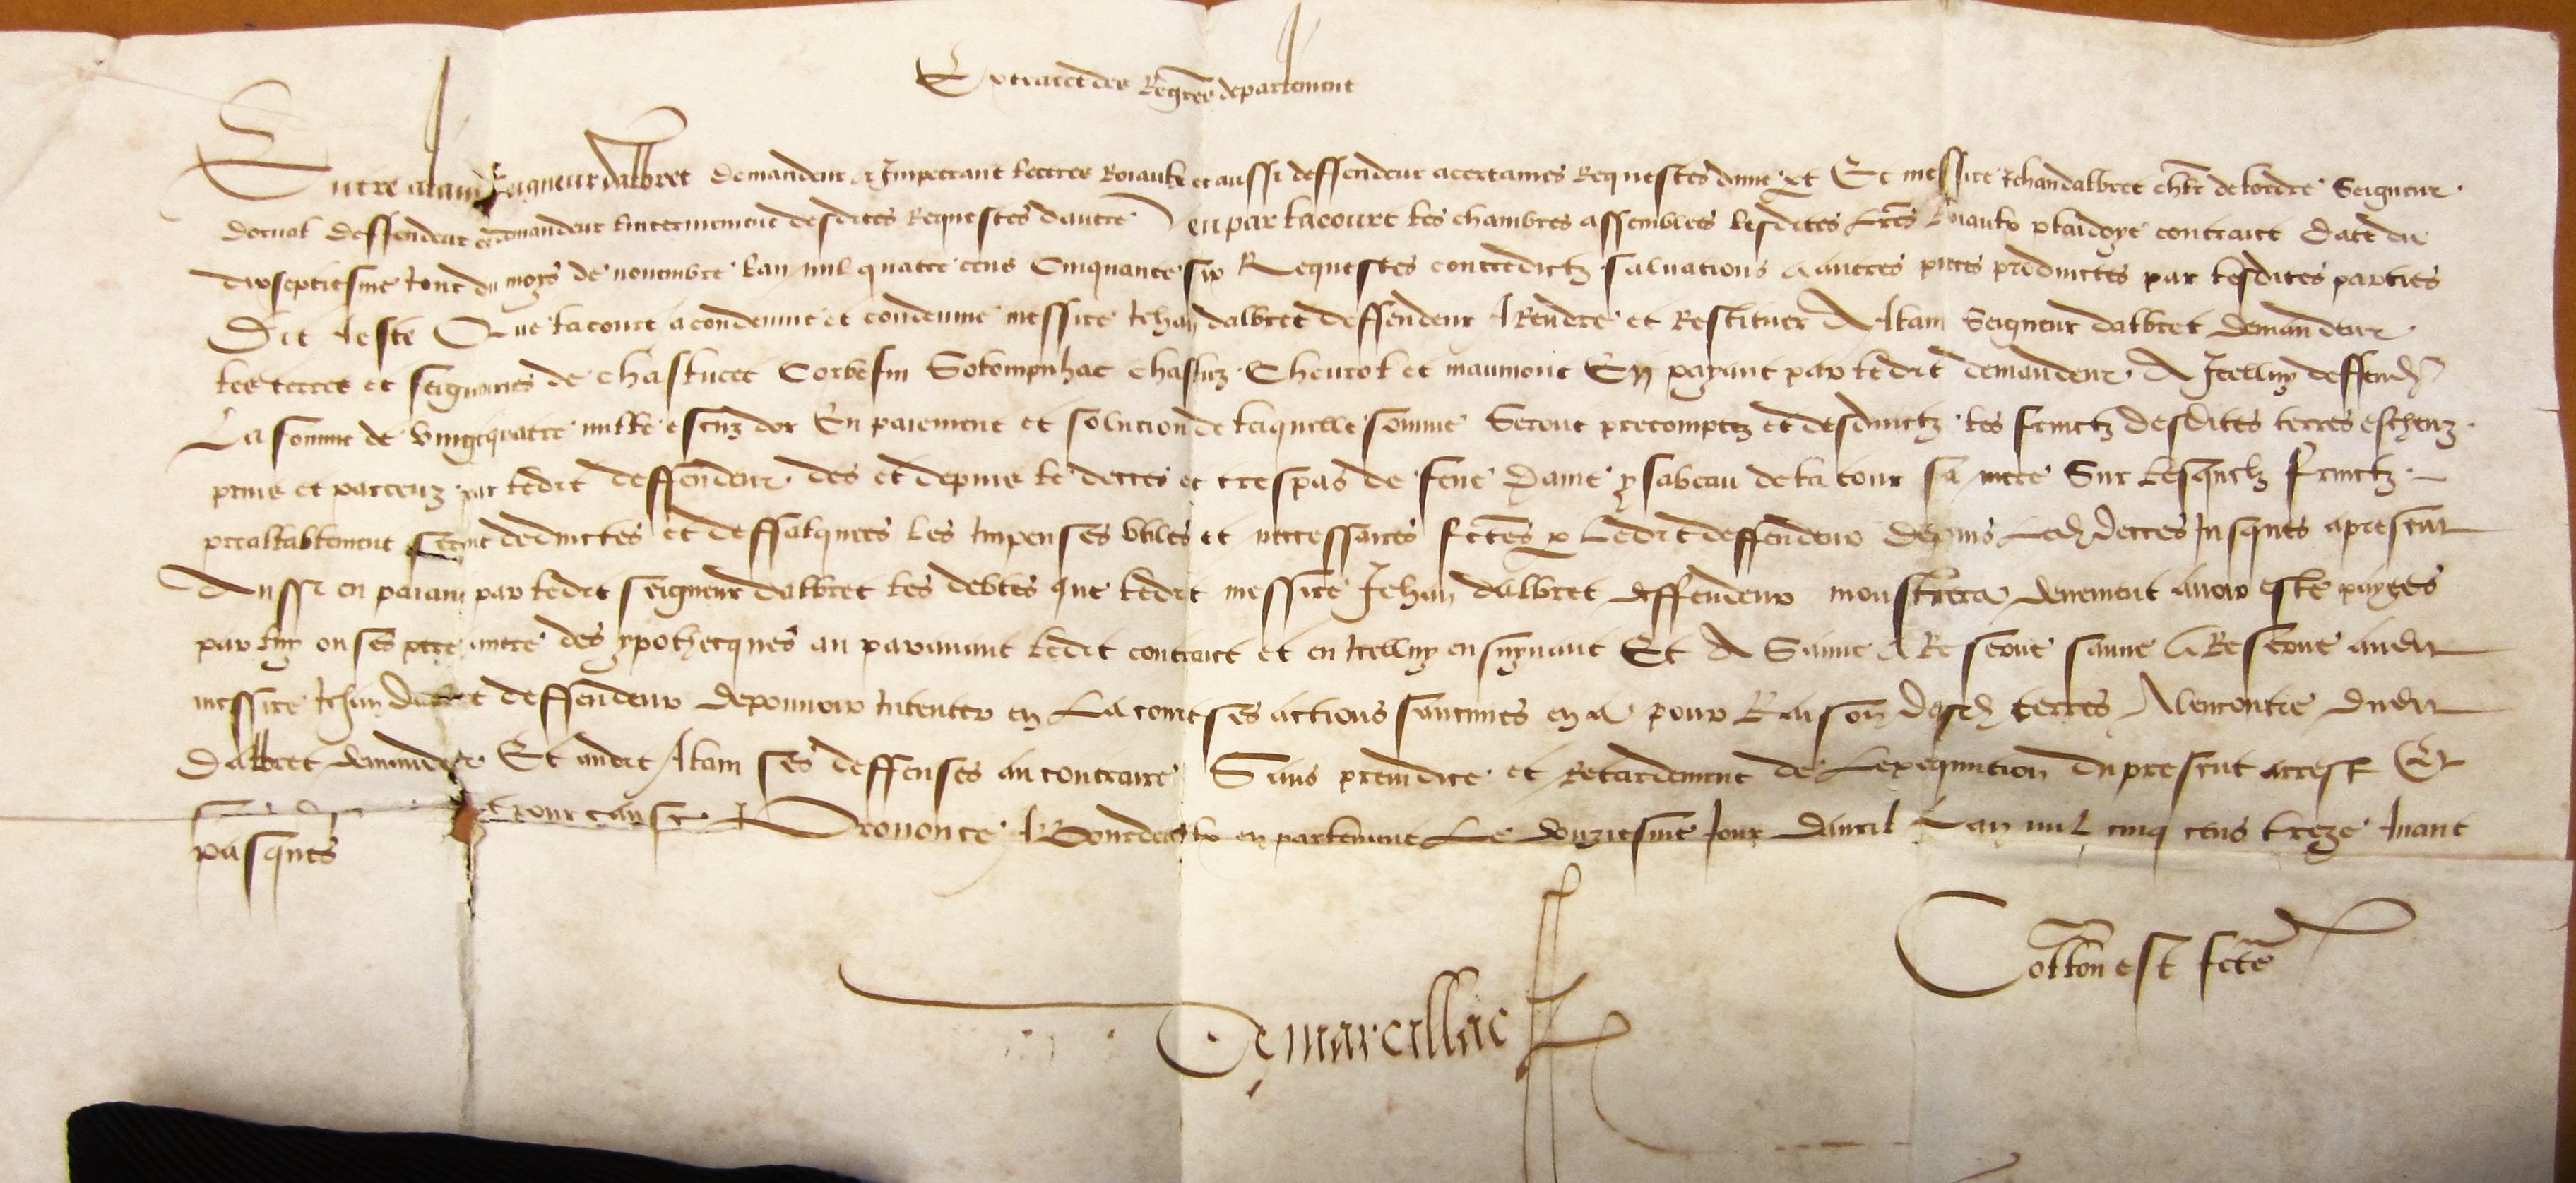 Extraict des Regrēs de parlement
Entre alain Seigneur dalbret demandeur & Impetrant lectres Roiaulx et aussi deffendeur a certaines Requestes dune pt Et messire Jehan dalbret chlr de lordre Seigneur
dorual deffendeur et demandeur linterinement desdites Requestes dautre Veu par la court les chambres assemblees lesdites lrēs Roiaulx plaidoyé contraict daté du
dixseptiesme Jour du moys de nouembre lan mil quatre cens Cinquante six Requestes contredictz saluations & autres pieces produictes par lesdites parties
Dit a esté Que la court a condemné et condemne messire Jehan dalbret deffendeur A Rendre et Restituer A Alain Seigneur dalbret demandeur
les terres et seigneuries de chaslucet Corbefin Solompnhac chasluz Cheurol et maumont En payant par ledit demandeur A Icelluy deffendr
La somme de vingtquatre mille escuz dor En paiement et solucion de laquelle somme Seront precomptez et desduictz les fruictz desdites terres escheuz
prins et parceuz par ledit deffendeur des et depuis le decces et trespas de feue Dame ysabeau de la tour sa mere Sur lesquelz fruictz
preallablement seront deduictes et deffalquees les Impenses vtiles et neccessaires fctes p ledit deffendeur depuis led decces Jusques a present
Aussi en paiant par ledit seigneur dalbret les debtes que ledit messire Jehan dalbret deffendeur monstrera deuement auoir esté payees
par luy ou ses pere mere des ypothecques au parauant ledit contraict et en Icelluy ensuyuant Et A Sauué & Reserué sauue & Reserue audit
messire Jehan dalbret deffendeur de pouuoir Intenter en La court ses actions saucunes en a pour Raison desd terres A lencontre dudit
Dalbret demandeur Et audit Alain ses deffenses au contraire Sans preiudice et Retardement de Lexequution du present arrest Et
pour cause Prononcé A Bourdeaulx en parlement Le douziesme Jour dauril Lan mil cinq cens treze Auant
pasques
Collon est fcte
De marcillac